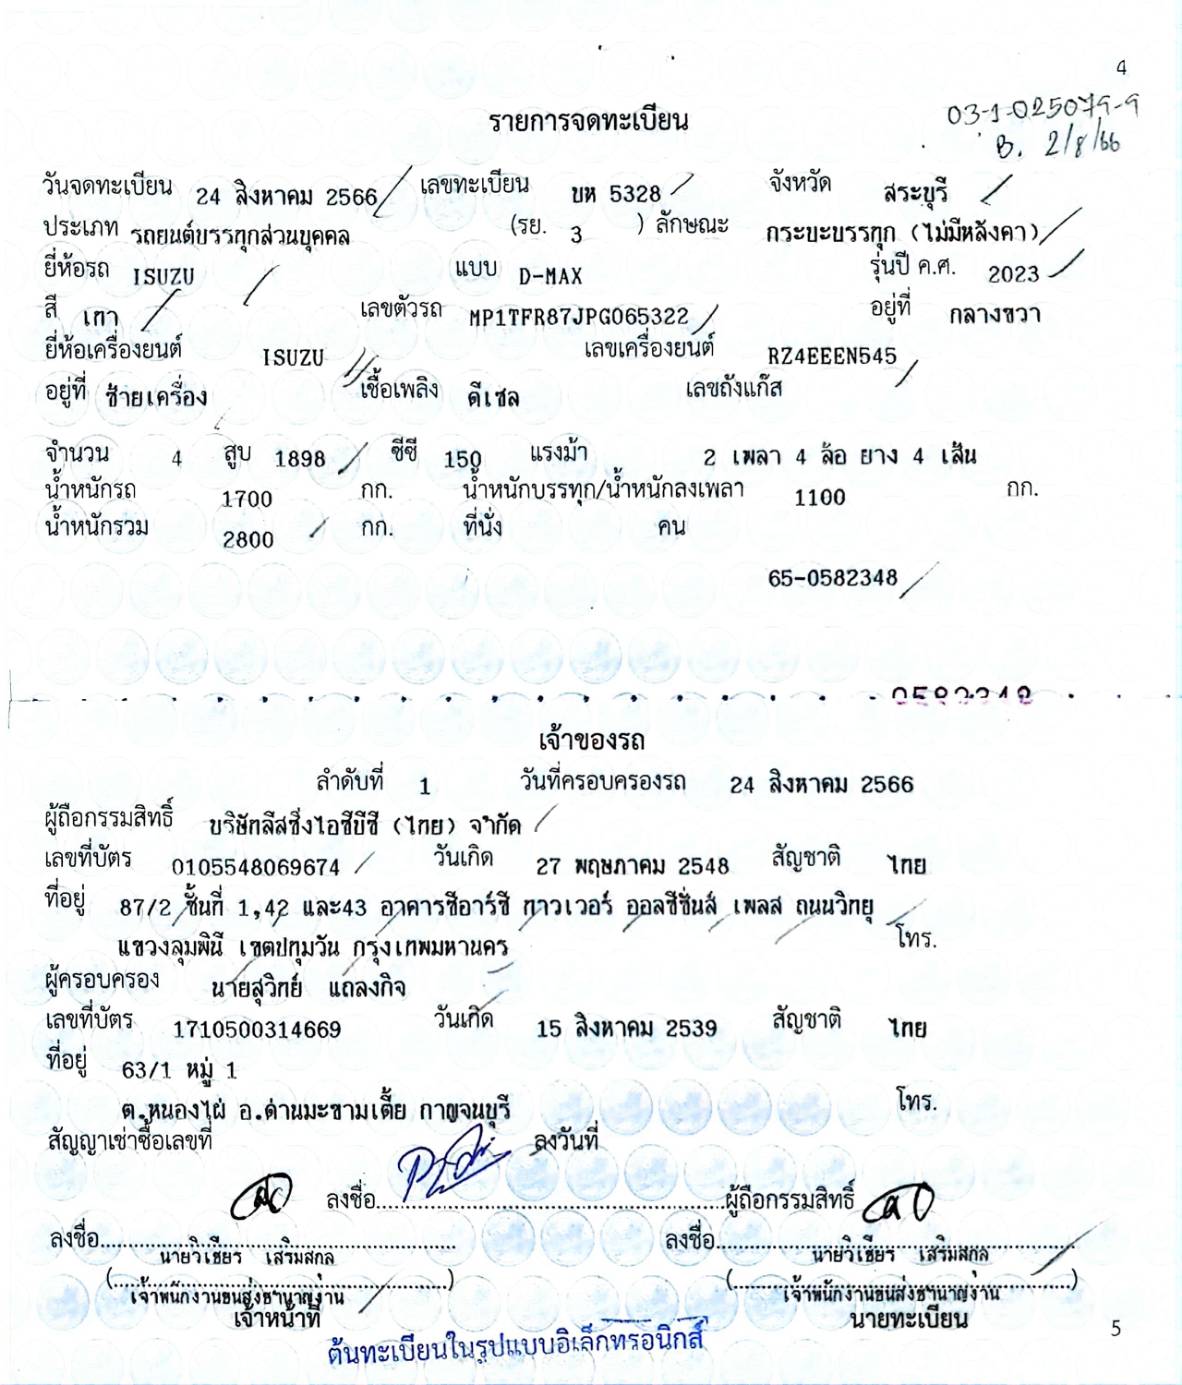 4
รายการจดทะเบียน
03-1-025079-9
B. 2/8/66
วันจดทะเบียน 24 สิงหาคม 2566 เลขทะเบียน บห 5328 จังหวัด สระบุรี
ประเภท รถยนต์บรรทุกส่วนบุคคล (รย. 3 ) ลักษณะ กระบะบรรทุก (ไม่มีหลังคา)
ยี่ห้อรถ ISUZU แบบ D-MAX รุ่นปี ค.ศ. 2023
สี เทา เลขตัวรถ MP1TFR87JPG065322 อยู่ที่ กลางขวา
ยี่ห้อเครื่องยนต์ ISUZU เลขเครื่องยนต์ RZ4EEEN545
อยู่ที่ ซ้ายเครื่อง เชื้อเพลิง ดีเซล เลขถังแก๊ส
จำนวน 4 สูบ 1898 ซีซี 150 แรงม้า 2 เพลา 4 ล้อ ยาง 4 เส้น
น้ำหนักรถ 1700 กก. น้ำหนักบรรทุก/น้ำหนักลงเพลา 1100 กก.
น้ำหนักรวม 2800 กก. ที่นั่ง คน
65-0582348
0582348
เจ้าของรถ
ลำดับที่ 1 วันที่ครอบครองรถ 24 สิงหาคม 2566
ผู้ถือกรรมสิทธิ์ บริษัทลีสซิ่งไอซีบีซี (ไทย) จำกัด
เลขที่บัตร 0105548069674 วันเกิด 27 พฤษภาคม 2548 สัญชาติ ไทย
ที่อยู่ 87/2 ชั้นที่ 1,42 และ43 อาคารซีอาร์ซี ทาวเวอร์ ออลซีซั่นส์ เพลส ถนนวิทยุ
แขวงลุมพินี เขตปทุมวัน กรุงเทพมหานคร โทร.
ผู้ครอบครอง นายสุวิทย์ แถลงกิจ
เลขที่บัตร 1710500314669 วันเกิด 15 สิงหาคม 2539 สัญชาติ ไทย
ที่อยู่ 63/1 หมู่ 1
ต.หนองไผ่ อ.ด่านมะขามเตี้ย กาญจนบุรี โทร.
สัญญาเช่าซื้อเลขที่ ลงวันที่
ลงชื่อ..........ผู้ถือกรรมสิทธิ์
ลงชื่อ.......... ลงชื่อ..........
นายวิเชียร เสริมสกล นายวิเชียร เสริมสกล
(..........) (..........)
เจ้าพนักงานขนส่งชำนาญงาน เจ้าพนักงานขนส่งชำนาญงาน
เจ้าหน้าที่ นายทะเบียน
ต้นทะเบียนในรูปแบบอิเล็กทรอนิกส์
5